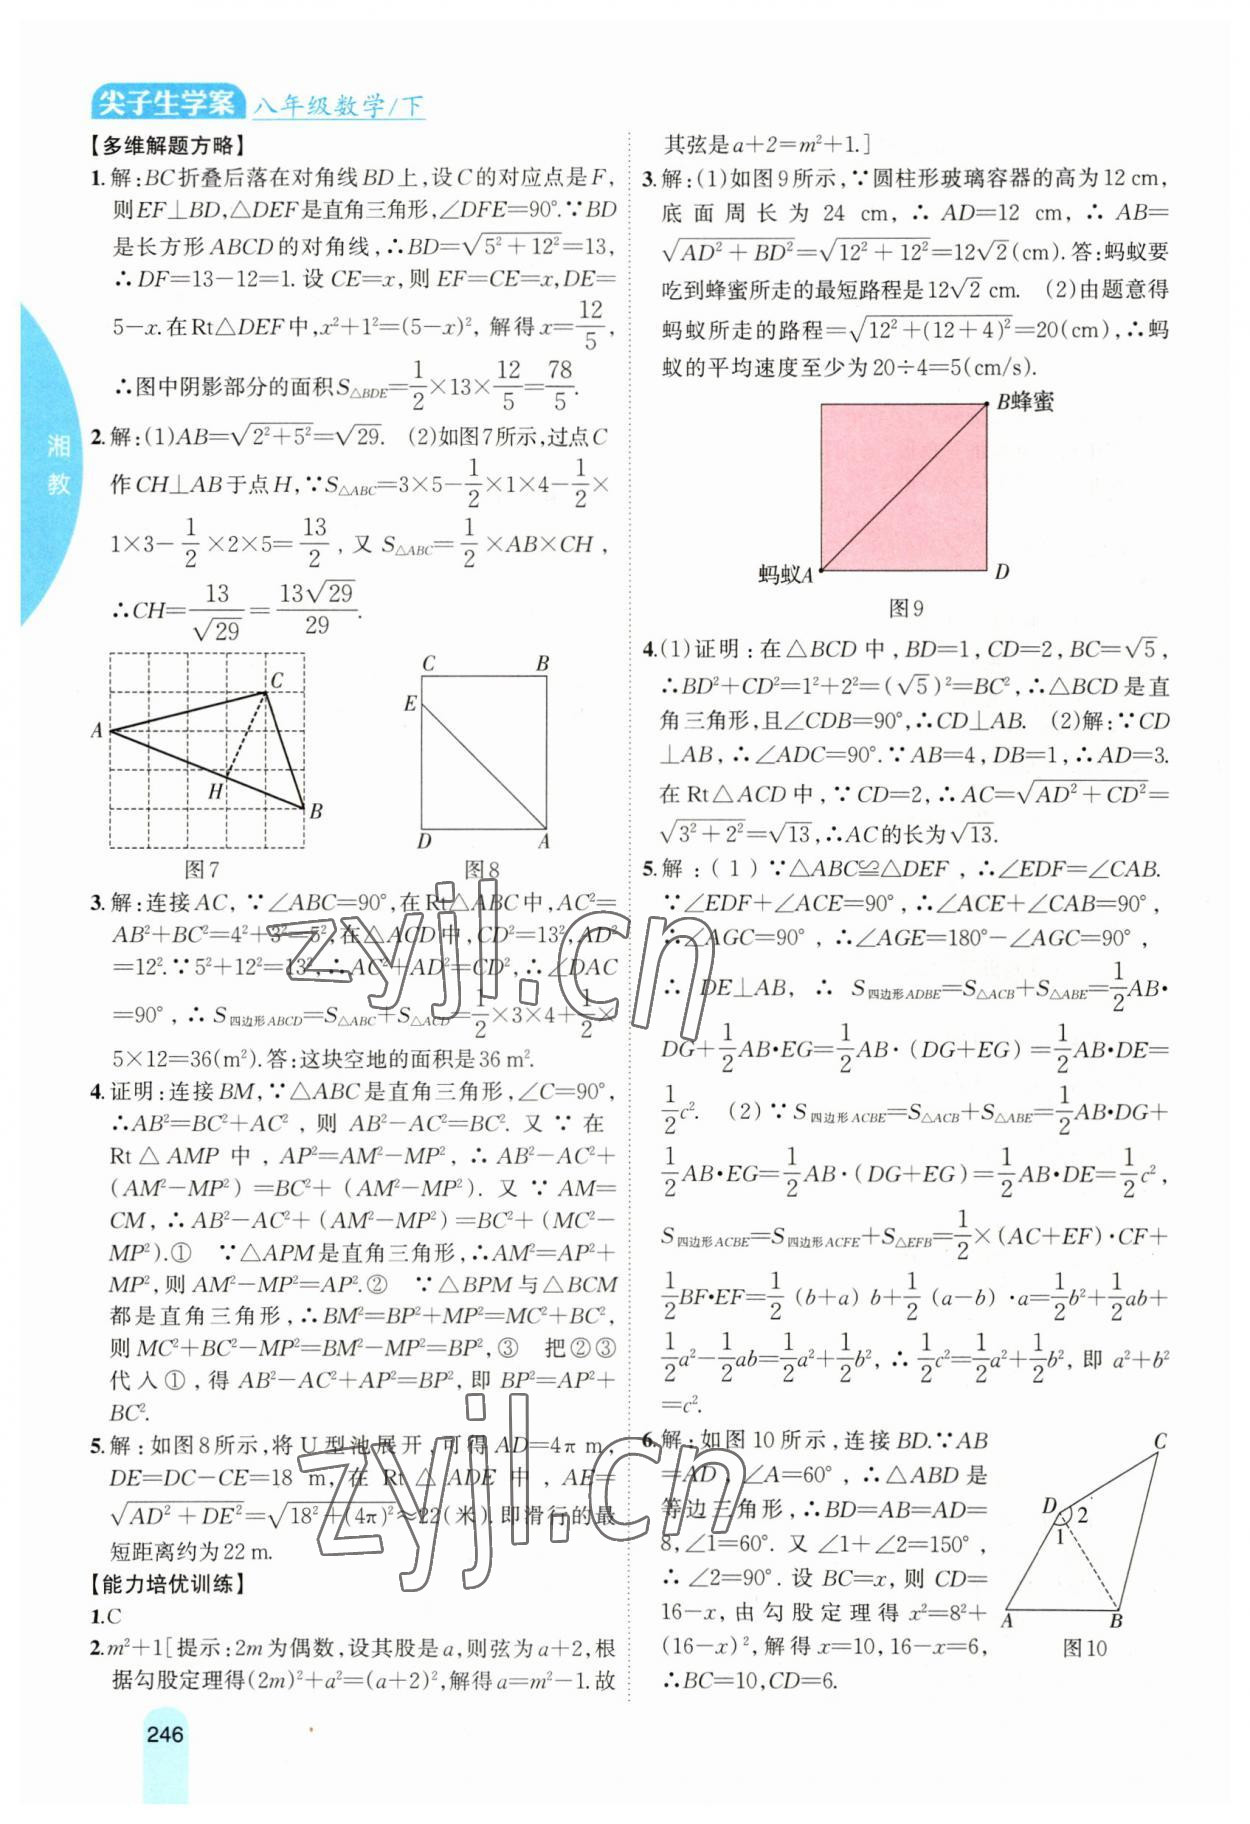 尖子生学案 八年级数学/下
湘教
【多维解题方略】
1.解:BC折叠后落在对角线BD上,设C的对应点是F,
则EF⊥BD,△DEF是直角三角形,∠DFE=90°.∵BD
是长方形ABCD的对角线,∴BD=√(5²+12²)=13,
∴DF=13-12=1.设CE=x,则EF=CE=x,DE=
5-x.在Rt△DEF中,x²+1²=(5-x)²,解得x=12/5,
∴图中阴影部分的面积S△BDE=1/2×13×12/5=78/5.
2.解:(1)AB=√(2²+5²)=√29. (2)如图7所示,过点C
作CH⊥AB于点H,∵S△ABC=3×5-1/2×1×4-1/2×
1×3-1/2×2×5=13/2,又S△ABC=1/2×AB×CH,
∴CH=13/√29=13√29/29.
A
C
H
B
图7
C
B
E
D
A
图8
3.解:连接AC,∵∠ABC=90°,在Rt△ABC中,AC²=
AB²+BC²=4²+3²=5²,在△ACD中,CD²=13²,AD²
=12².∵5²+12²=13²,∴AC²+AD²=CD²,∴∠DAC
=90°,∴S四边形ABCD=S△ABC+S△ACD=1/2×3×4+1/2×
5×12=36(m²).答:这块空地的面积是36 m².
4.证明:连接BM,∵△ABC是直角三角形,∠C=90°,
∴AB²=BC²+AC²,则AB²-AC²=BC².又∵在
Rt△AMP中,AP²=AM²-MP²,∴AB²-AC²+
(AM²-MP²)=BC²+(AM²-MP²).又∵AM=
CM,∴AB²-AC²+(AM²-MP²)=BC²+(MC²-
MP²).① ∵△APM是直角三角形,∴AM²=AP²+
MP²,则AM²-MP²=AP².② ∵△BPM与△BCM
都是直角三角形,∴BM²=BP²+MP²=MC²+BC²,
则MC²+BC²-MP²=BM²-MP²=BP²,③ 把②③
代入①,得AB²-AC²+AP²=BP²,即BP²=AP²+
BC².
5.解:如图8所示,将U型池展开,可得AD=4π m,
DE=DC-CE=18 m,在Rt△ADE中,AE=
√(AD²+DE²)=√(18²+(4π)²)≈22(米).即滑行的最
短距离约为22 m.
【能力培优训练】
1.C
2.m²+1[提示:2m为偶数,设其股是a,则弦为a+2,根
据勾股定理得(2m)²+a²=(a+2)²,解得a=m²-1.故
其弦是a+2=m²+1.]
3.解:(1)如图9所示,∵圆柱形玻璃容器的高为12 cm,
底面周长为24 cm,∴AD=12 cm,∴AB=
√(AD²+BD²)=√(12²+12²)=12√2(cm).答:蚂蚁要
吃到蜂蜜所走的最短路程是12√2 cm. (2)由题意得
蚂蚁所走的路程=√(12²+(12+4)²)=20(cm),∴蚂
蚁的平均速度至少为20÷4=5(cm/s).
B蜂蜜
蚂蚁A
D
图9
4.(1)证明:在△BCD中,BD=1,CD=2,BC=√5,
∴BD²+CD²=1²+2²=(√5)²=BC²,∴△BCD是直
角三角形,且∠CDB=90°,∴CD⊥AB. (2)解:∵CD
⊥AB,∴∠ADC=90°.∵AB=4,DB=1,∴AD=3.
在Rt△ACD中,∵CD=2,∴AC=√(AD²+CD²)=
√(3²+2²)=√13,∴AC的长为√13.
5.解:(1)∵△ABC≌△DEF,∴∠EDF=∠CAB.
∵∠EDF+∠ACE=90°,∴∠ACE+∠CAB=90°,
∴∠AGC=90°,∴∠AGE=180°-∠AGC=90°,
∴DE⊥AB,∴S四边形ADBE=S△ACB+S△ABE=1/2AB•
DG+1/2AB•EG=1/2AB·(DG+EG)=1/2AB•DE=
1/2c². (2)∵S四边形ACBE=S△ACB+S△ABE=1/2AB•DG+
1/2AB•EG=1/2AB·(DG+EG)=1/2AB•DE=1/2c²,
S四边形ACBE=S四边形ACFE+S△EFB=1/2×(AC+EF)·CF+
1/2BF•EF=1/2(b+a)b+1/2(a-b)·a=1/2b²+1/2ab+
1/2a²-1/2ab=1/2a²+1/2b²,∴1/2c²=1/2a²+1/2b²,即a²+b²
=c².
6.解:如图10所示,连接BD.∵AB
=AD,∠A=60°,∴△ABD是
等边三角形,∴BD=AB=AD=
8,∠1=60°.又∠1+∠2=150°,
∴∠2=90°.设BC=x,则CD=
16-x,由勾股定理得x²=8²+
(16-x)²,解得x=10,16-x=6,
∴BC=10,CD=6.
C
D
2
1
A
B
图10
zyjl.cn
zyjl.cn
246